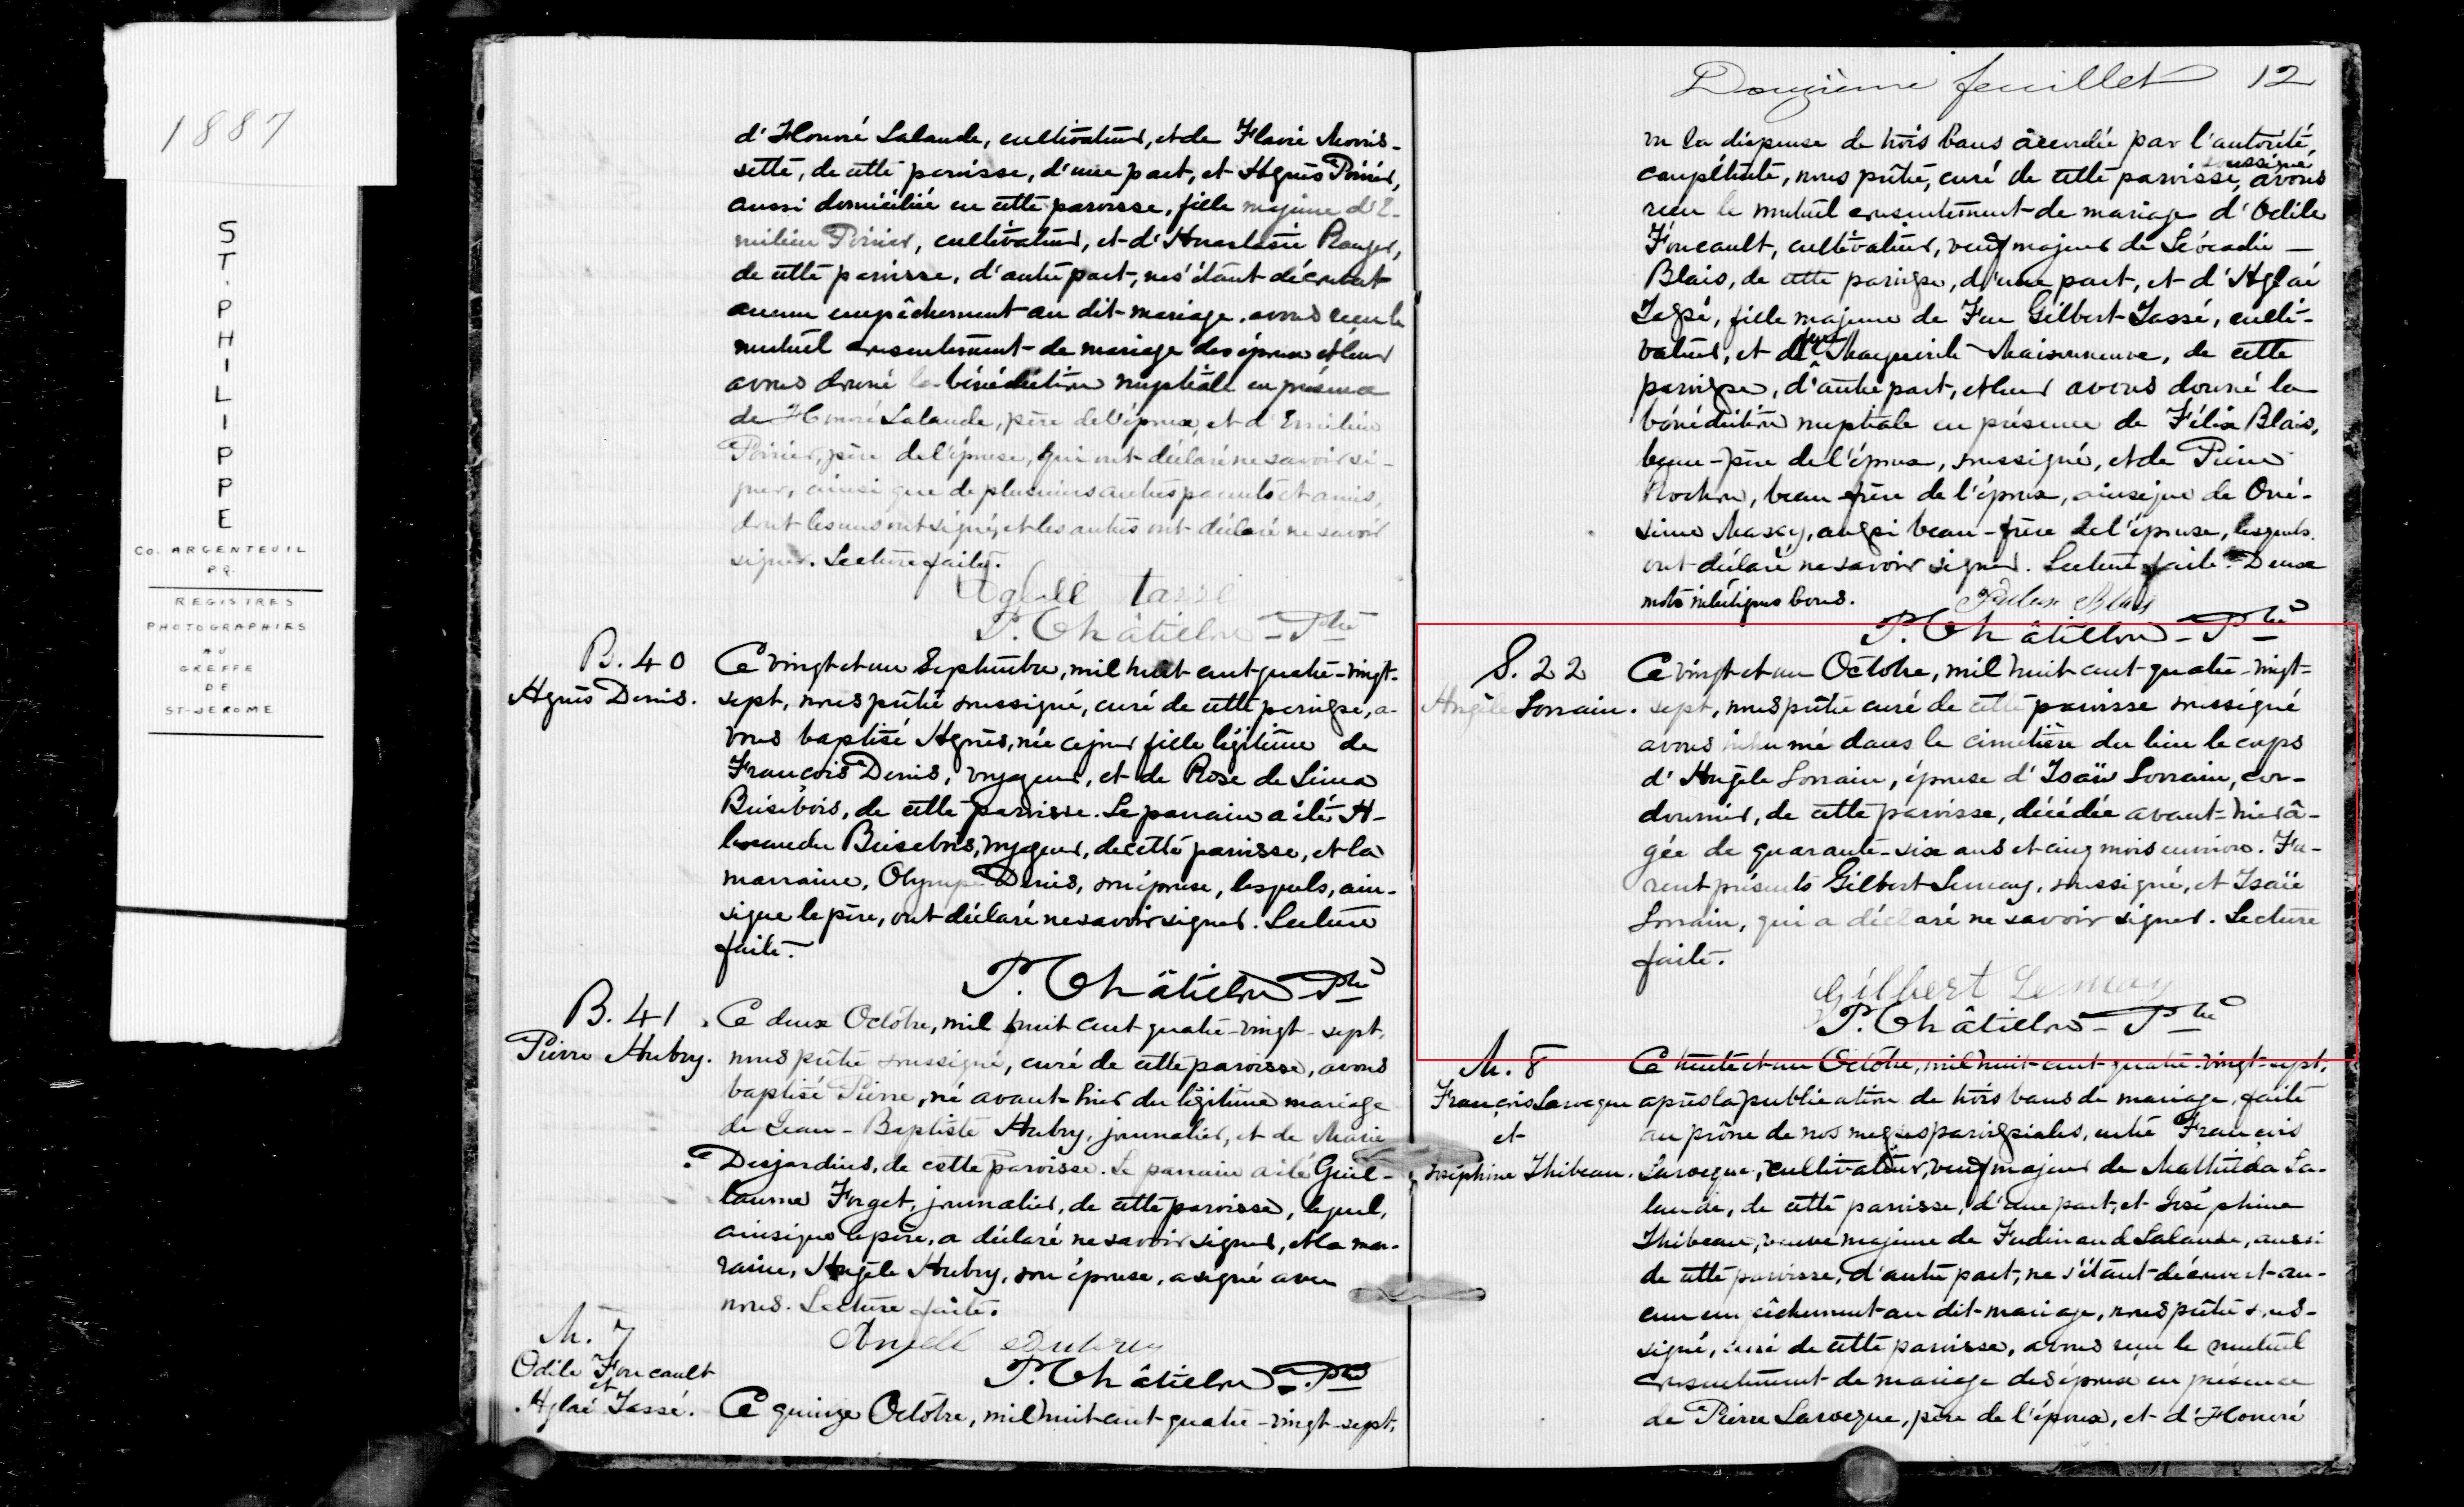 1887
ST. PHILIPPE
Co. ARGENTEUIL
P.Q.
REGISTRES
PHOTOGRAPHIES
AU
GREFFE
DE
ST-JEROME
d'Honoré Lalande, cultivateur, et de Flavie Moris-
sette, de cette paroisse, d'une part, et Agnès Poirier,
aussi domiciliée en cette paroisse, fille majeure d'E-
milien Poirier, cultivateur, et d'Anastasie Ranger,
de cette paroisse, d'autre part, ne s'étant découvert
aucun empêchement au dit mariage, avons reçu le
mutuel consentement de mariage des époux et leur
avons donné la bénédiction nuptiale en présence
de Honoré Lalande, père de l'époux, et d'Emilien
Poirier, père de l'épouse, qui ont déclaré ne savoir si-
gner, ainsi que de plusieurs autres parents et amis,
dont les uns ont signé, et les autres ont déclaré ne savoir
signer. Lecture faite.
Tassé
P. Châtillon - Ptre
B. 40
Agnès Denis.
Ce vingt et un Septembre, mil huit cent quatre-vingt-
sept, nous prêtre soussigné, curé de cette paroisse, a-
vons baptisé Agnès, née ce jour fille légitime de
François Denis, voyageur, et de Rose de Lima
Brisebois, de cette paroisse. Le parrain a été A-
lexandre Brisebois, voyageur, de cette paroisse, et la
marraine, Olympe Denis, son épouse, lesquels, ain-
si que le père, ont déclaré ne savoir signer. Lecture
faite.
P. Châtillon - Ptre
B. 41
Pierre Aubry.
Ce deux Octobre, mil huit cent quatre-vingt-sept,
nous prêtre soussigné, curé de cette paroisse, avons
baptisé Pierre, né avant-hier du légitime mariage
de Jean-Baptiste Aubry, journalier, et de Marie
Desjardins, de cette paroisse. Le parrain a été Guil-
laume Forget, journalier, de cette paroisse, lequel,
ainsi que le père, a déclaré ne savoir signer, et la mar-
raine, Angèle Aubry, son épouse, a signé avec
nous. Lecture faite.
Angèle Aubry
P. Châtillon - Ptre
M. 7
Odile Foucault
et
Aglaé Tassé.
Ce quinze Octobre, mil huit cent quatre-vingt-sept,
Douzième feuillet 12
vu la dispense de trois bans accordée par l'autorité
soussigné
compétente, nous prêtre, curé de cette paroisse, avons
reçu le mutuel consentement de mariage d'Odile
Foucault, cultivateur, veuf majeur de Léocadie
Blais, de cette paroisse, d'une part, et d'Aglaé
Tassé, fille majeure de Feu Gilbert Tassé, culti-
vateur, et de feue Marguerite Maisonneuve, de cette
paroisse, d'autre part, et leur avons donné la
bénédiction nuptiale en présence de Félix Blais,
beau-père de l'époux, soussigné, et de Pierre
Rochon, beau-frère de l'époux, ainsi que de Oné-
sime Massy, aussi beau-frère de l'épouse, lesquels
ont déclaré ne savoir signer. Lecture faite. Deux
mots interlignes bons.
Felix Blais
P. Châtillon - Ptre
S. 22
Angèle Lorrain.
Ce vingt et un Octobre, mil huit cent quatre-vingt-
sept, nous prêtre curé de cette paroisse soussigné
avons inhumé dans le cimetière du lieu le corps
d'Angèle Lorrain, épouse d'Isaïe Lorrain, cor-
donnier, de cette paroisse, décédée avant-hier â-
gée de quarante-six ans et cinq mois environ. Fu-
rent présents Gilbert Lemay, soussigné, et Isaïe
Lorrain, qui a déclaré ne savoir signer. Lecture
faite.
Gilbert Lemay
P. Châtillon - Ptre
M. 8
François Larocque
et
Joséphine Thibeau.
Ce trente et un Octobre, mil huit cent quatre-vingt-sept,
après la publication de trois bans de mariage, faite
au prône de nos messes paroissiales, entre François
Larocque, cultivateur, veuf majeur de Mathilda La-
lande, de cette paroisse, d'une part, et Joséphine
Thibeau, veuve majeure de Ferdinand Lalande, aussi
de cette paroisse, d'autre part, ne s'étant découvert au-
cun empêchement au dit mariage, nous prêtre sous-
signé, curé de cette paroisse, avons reçu le mutuel
consentement de mariage des époux en présence
de Pierre Larocque, père de l'époux, et d'Honoré